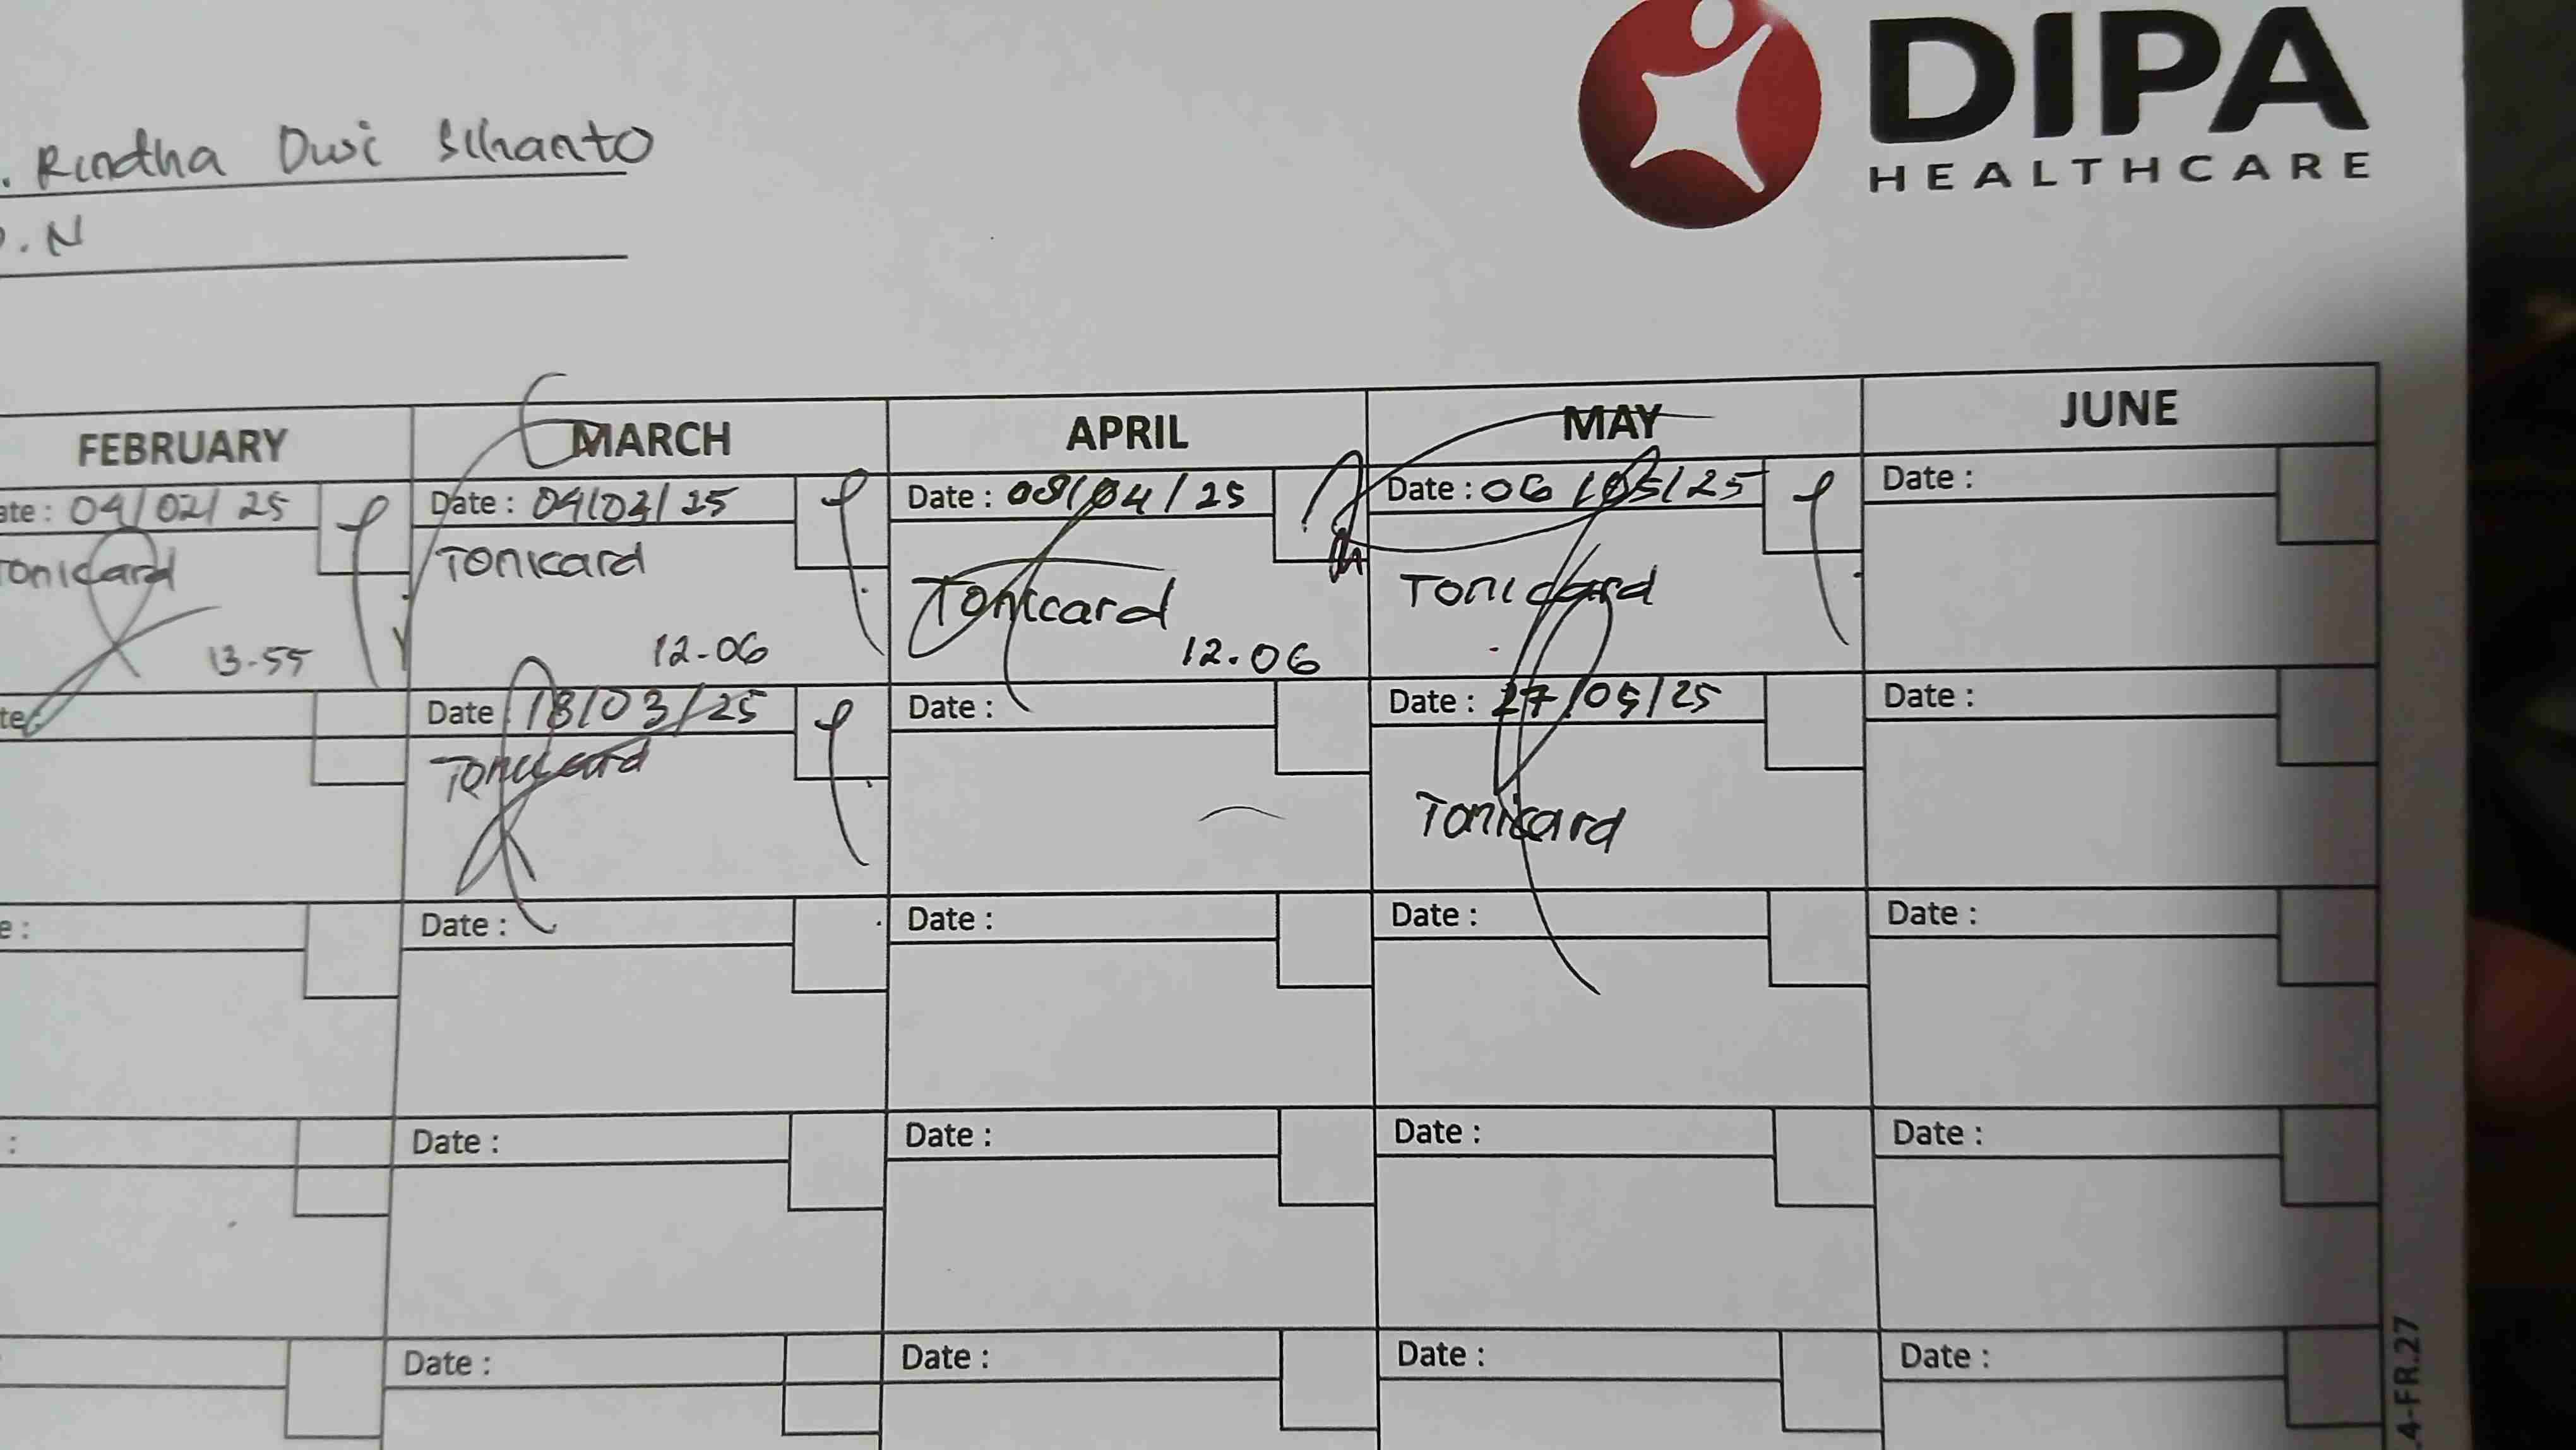 DIPA
HEALTHCARE
. Rindha Dwi
. N
FEBRUARY MARCH APRIL MAY JUNE
ate : 04/02/25 Date : 04/03/25 Date : 08/04/25 Date : 06/05/25 Date :
Tonicard Tonicard Tonicard Tonicard
13-55 12-06 12.06
te: Date : 18/03/25 Date : Date : 27/05/25 Date :
Tonicard Tonicard
e : Date : Date : Date : Date :
: Date : Date : Date : Date :
Date : Date : Date : Date :
4-FR.27